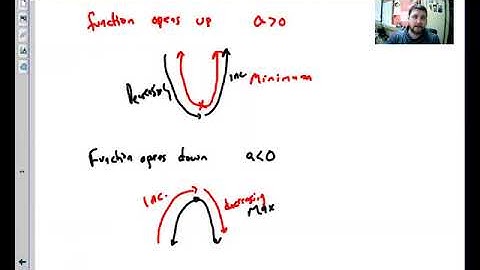 function opens up a>0
Decreasing
inc
Minimum
Function opens down a<0
Inc.
decreasing
Max